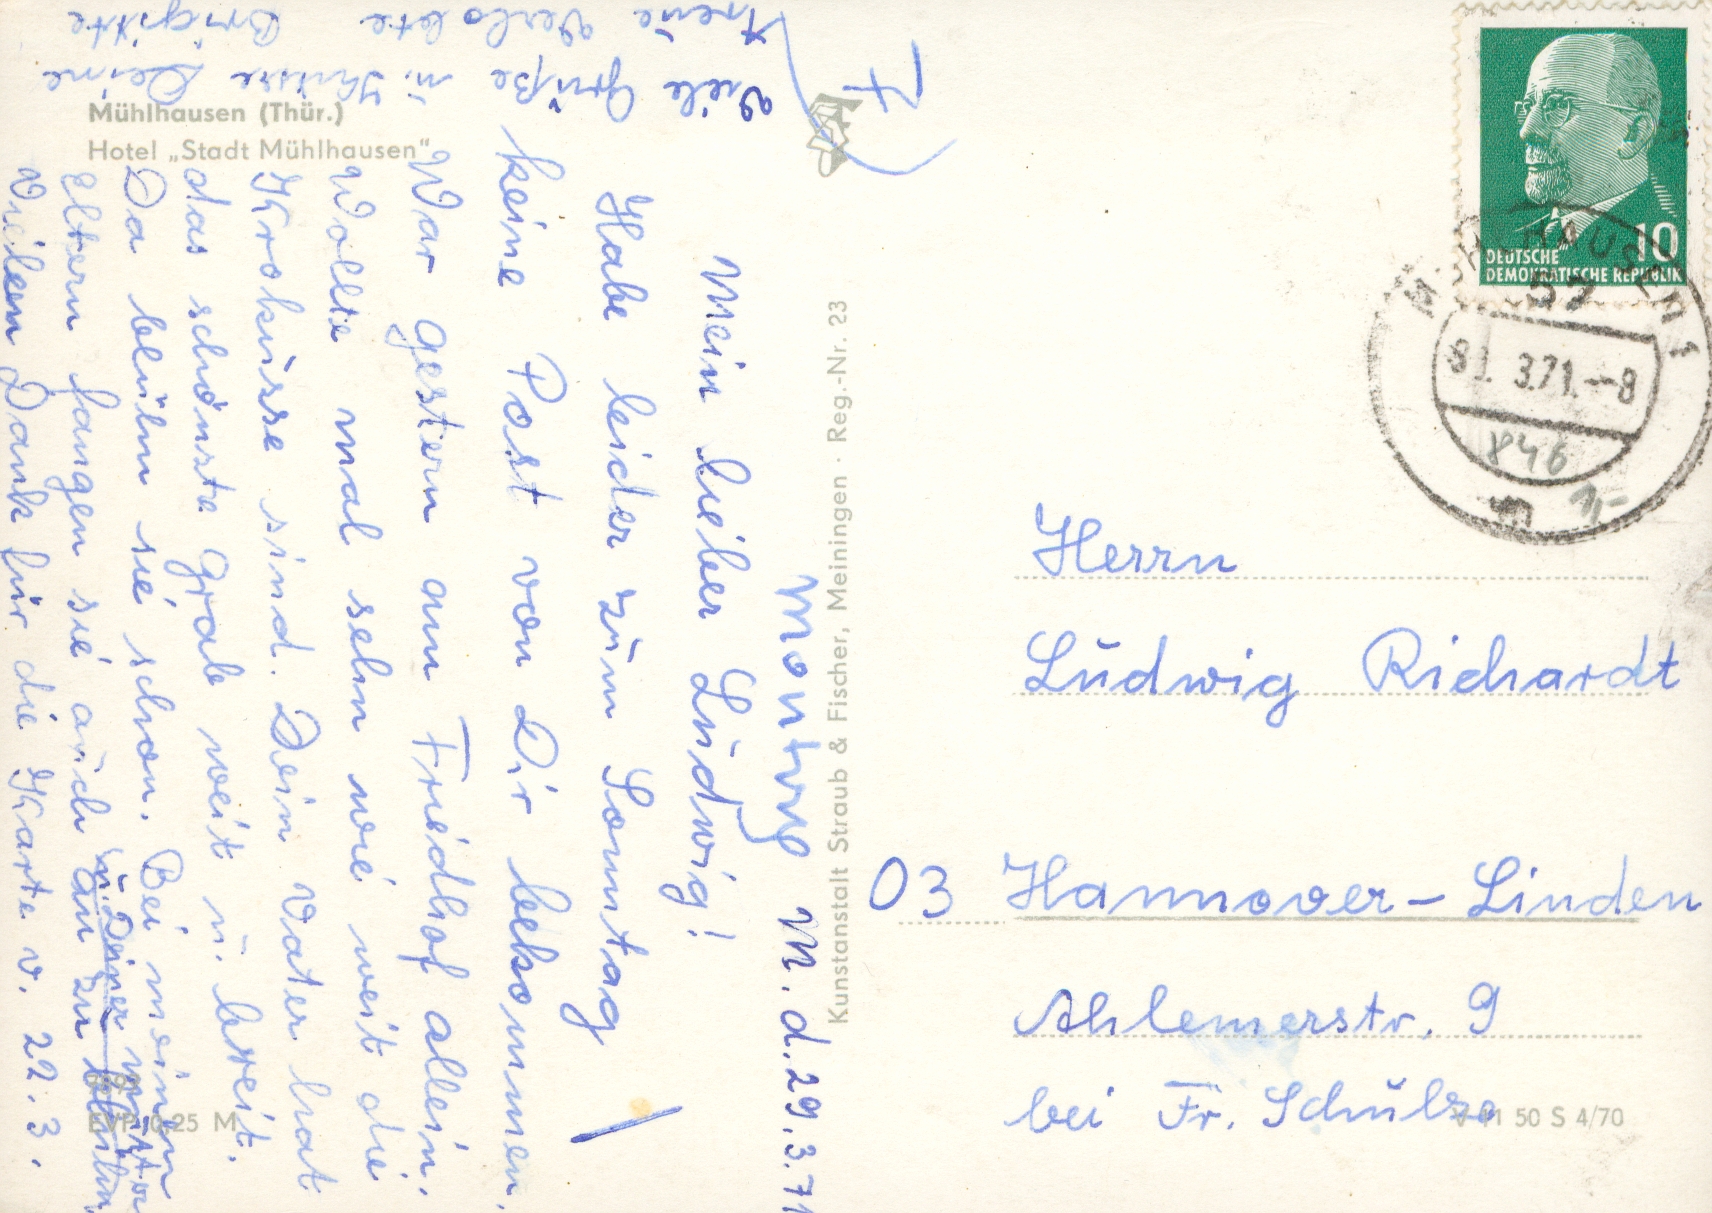 Mühlhausen (Thür.)
Hotel „Stadt Mühlhausen"
Montag M. d. 29.3.71
Mein lieber Ludwig!
Habe leider zum Sonntag
keine Post von Dir bekommen.
War gestern am Friedhof allein.
Wollte mal sehn wie weit die
Krokusse sind. Dein Vater hat
das schönste Grab weit u. breit.
Da blühn sie schon. Bei meinen
Eltern fangen sie auch an zu blühn
u. Deiner Mutter
Vielen Dank für die Karte v. 22.3.
Viele Grüße u. Küsse Deine
treue Verlobte Brigitte
Kunstanstalt Straub & Fischer, Meiningen · Reg.-Nr. 23
EVP 0,25 M
V 11 50 S 4/70
10
DEUTSCHE
DEMOKRATISCHE REPUBLIK
MÜHLHAUSEN 1
57
31. 3.71.-8
m
846
1,-
Herrn
Ludwig Richardt
03 Hannover-Linden
Ahlemerstr. 9
bei Fr. Schulze